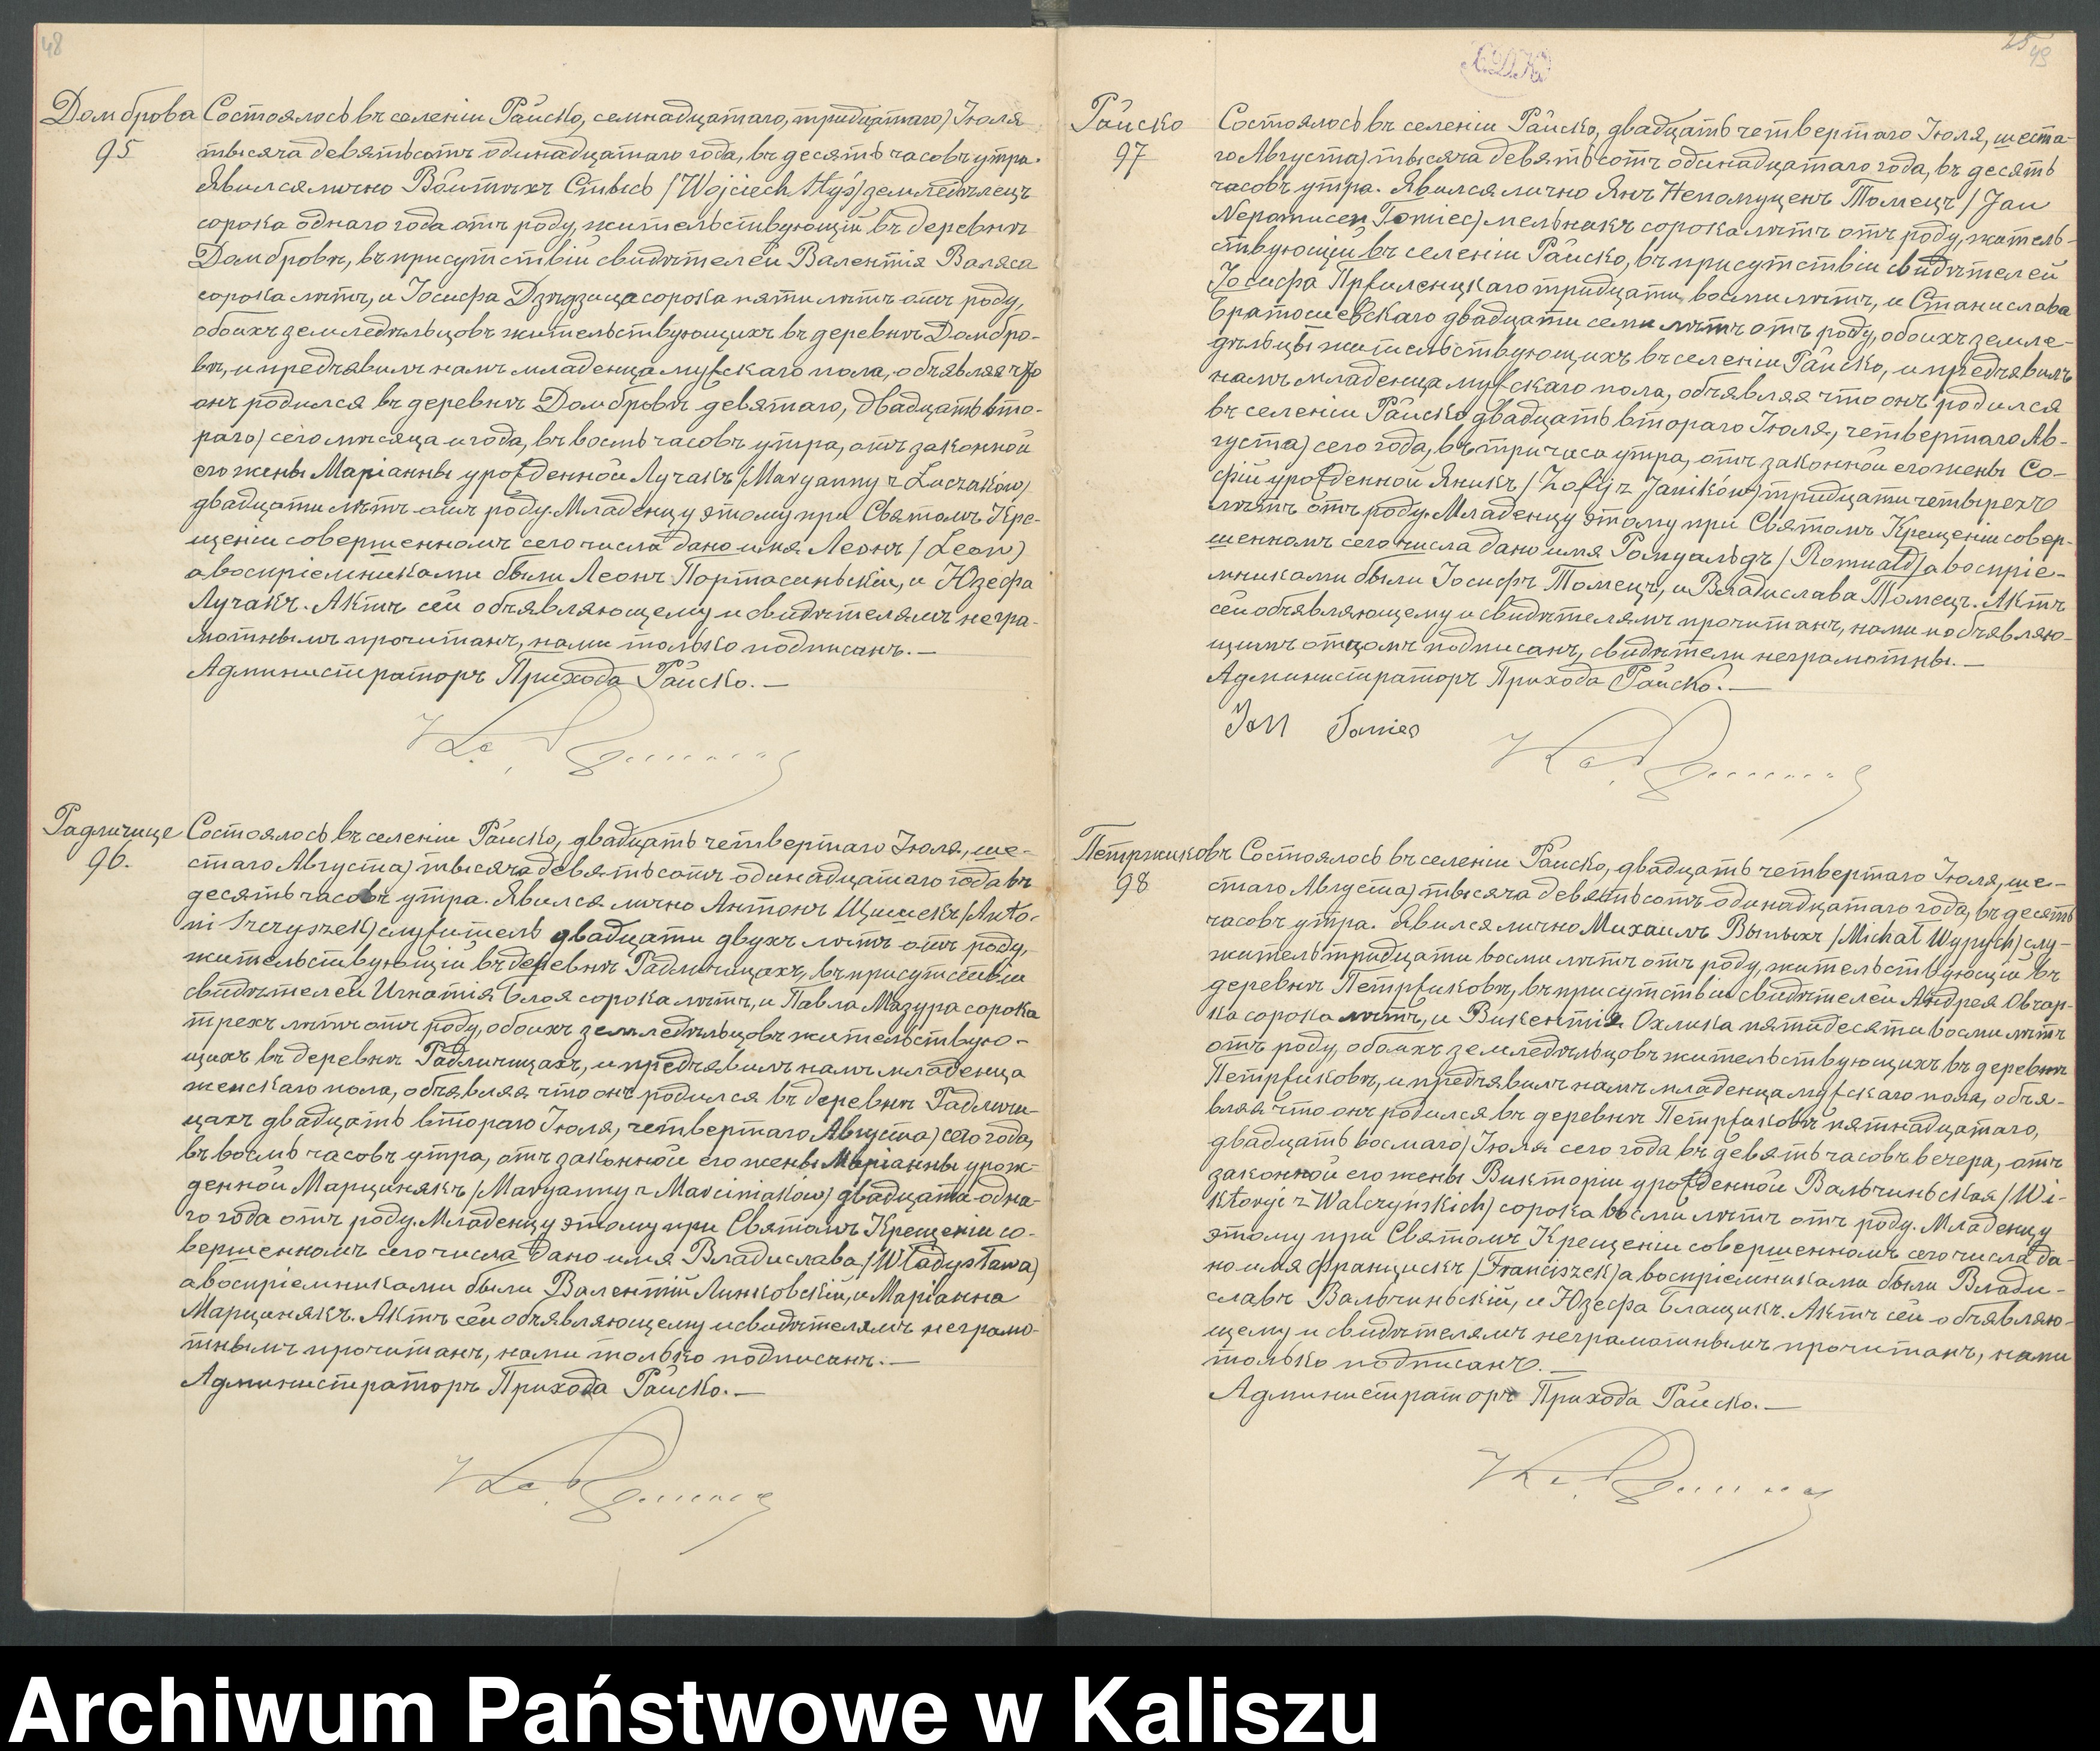 48
Домброва
95
Состоялось въ селеніи Райско, семнадцатаго, /тридцатаго/ Іюля
тысяча девятьсотъ одинадцатаго года, въ десять часовъ утра.
Явился лично Войтыхъ Стысь /Wojciech Styś/ земледѣлецъ
сорока однаго года отъ роду, жительствующій въ деревнѣ
Домбровѣ, въ присутствіи свидѣтелей Валентія Валяса
сорока лѣтъ, и Іосифа сорока пяти лѣтъ отъ роду,
обоихъ земледѣльцовъ жительствующихъ въ деревнѣ Домбро-
вѣ, и предъявилъ намъ младенца мужскаго пола, объявляя что
онъ родился въ деревнѣ Домбровѣ девятаго, /двадцать вто-
раго/ сего мѣсяца и года, въ восмь часовъ утра, отъ законной
его жены Маріанны урожденной Лучакъ /Maryanny z Łuczaków/
двадцати лѣтъ отъ роду. Младенцу этому при Святомъ Кре-
щеніи совершенномъ сего числа дано имя Леонъ /Leon/
а воспріемниками были Леонъ Портасиньскій, и Юзефа
Лучакъ. Актъ сей объявляющему и свидѣтелямъ негра-
мотнымъ прочитанъ, нами только подписанъ.—
Администраторъ Прихода Райско.—
Радличице
96.
Состоялось въ селеніи Райско, двадцать четвертаго Іюля, /ше-
стаго Августа/ тысяча девятьсотъ одинадцатаго года въ
десять часовъ утра. Явился лично Антонъ Щишекъ /Anto-
ni Szczyszek/ служитель двадцати двухъ лѣтъ отъ роду,
жительствующій въ деревнѣ Радличицахъ, въ присутствіи
свидѣтелей Игнатія Блоя сорока лѣтъ, и Павла Мазура сорока
трехъ лѣтъ отъ роду, обоихъ земледѣльцовъ жительствую-
щихъ въ деревнѣ Радличицахъ, и предъявилъ намъ младенца
женскаго пола, объявляя что онъ родился въ деревнѣ Радличи-
цахъ двадцать втораго Іюля, /четвертаго Августа/ сего года,
въ восмь часовъ утра, отъ законной его жены Маріанны урож-
денной Марциняакъ /Maryanny z Marciniaków/ двадцати одна-
го года отъ роду. Младенцу этому при Святомъ Крещеніи со-
вершенномъ сего числа дано имя Владислава /Władysława/
а воспріемниками были Валентій Линковскій, и Маріанна
Марцинякъ. Актъ сей объявляющему и свидѣтелямъ неграмо-
тнымъ прочитанъ, нами только подписанъ.—
Администраторъ Прихода Райско.—
25
49
Райско
97
Состоялось въ селеніи Райско, двадцать четвертаго Іюля, /шеста-
го Августа/ тысяча девятьсотъ одинадцатаго года, въ десять
часовъ утра. Явился лично Янъ Непомуценъ Томецъ /Jan
Nepomucen Tomiec/ мельнакъ сорока лѣтъ отъ роду, житель-
ствующій въ селеніи Райско, въ присутствіи свидѣтелей
Іосифа тридцати восми лѣтъ, и Станислава
Братошевскаго двадцати семи лѣтъ отъ роду, обоихъ земле-
дѣльцы жительствующихъ въ селеніи Райско, и предъявилъ
намъ младенца мужскаго пола, объявляя что онъ родился
въ селеніи Райско двадцать втораго Іюля, /четвертаго Ав-
густа/ сего года, въ три часа утра, отъ законной его жены Со-
фіи урожденной Яникъ /Zofij z Janików/ тридцати четырехъ
лѣтъ отъ роду. Младенцу этому при Святомъ Крещеніи совер-
шенномъ сего числа дано имя Ромуальдъ /Romuald/ а воспріе-
мниками были Іосифъ Томецъ, и Владислава Томецъ. Актъ
сей объявляющему и свидѣтелямъ прочитанъ, нами и объявляю-
щимъ отцомъ подписанъ, свидѣтели неграмотны.—
Администраторъ Прихода Райско.—
Jan Tomiec
Петржиковъ
98
Состоялось въ селеніи Райско, двадцать четвертаго Іюля, /ше-
стаго Августа/ тысяча девятьсотъ одинадцатаго года, въ десять
часовъ утра. Явился лично Михаилъ Выпыхъ /Michał Wypych/ слу-
житель тридцати восми лѣтъ отъ роду, жительствующій въ
деревнѣ Петржиковѣ, въ присутствіи свидѣтелей Андрея Овчар-
ка сорока лѣтъ, и Викентія Охлика пятидесяти восми лѣтъ
отъ роду, обоихъ земледѣльцовъ жительствующихъ въ деревнѣ
Петржиковѣ, и предъявилъ намъ младенца мужскаго пола, объя-
вляя что онъ родился въ деревнѣ Петржиковѣ пятнадцатаго,
/двадцать восмаго/ Іюля сего года въ девять часовъ вечера, отъ
законной его жены Викторіи урожденной Вальчиньская /Wi-
ktoryi z Walczyńskich/ сорока восми лѣтъ отъ роду. Младенцу
этому при Святомъ Крещеніи совершенномъ сего числа да-
но имя Францискъ /Franciszek/ а воспріемниками были Влади-
славъ Вальчиньскій, и Юзефа Блащикъ. Актъ сей объявляю-
щему и свидѣтелямъ неграмотнымъ прочитанъ, нами
только подписанъ.—
Администраторъ Прихода Райско.—
Archiwum Państwowe w Kaliszu